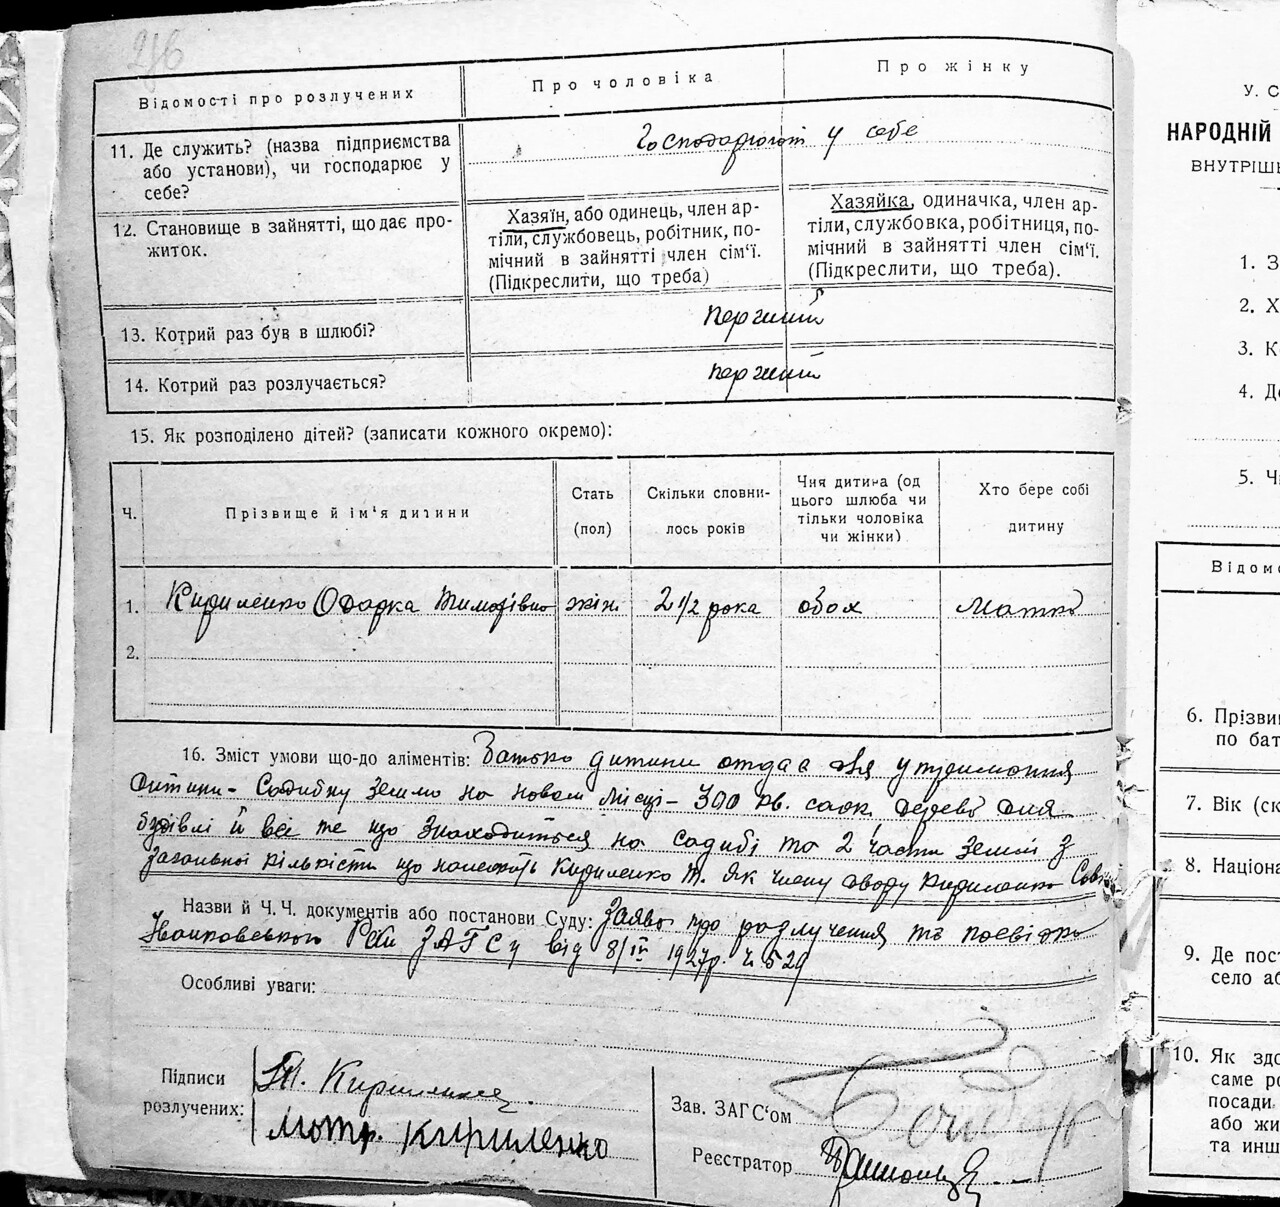 216
Відомості про розлучених
Про чоловіка
Про жінку
11. Де служить? (назва підприємства
або установи), чи господарює у
себе?
Господарюють у себе
12. Становище в зайнятті, що дає про-
житок.
Хазяїн, або одинець, член ар-
тіли, службовець, робітник, по-
мічний в зайнятті член сім'ї.
(Підкреслити, що треба)
Хазяйка, одиначка, член ар-
тіли, службовка, робітниця, по-
мічний в зайнятті член сім'ї.
(Підкреслити, що треба).
13. Котрий раз був в шлюбі?
перший
14. Котрий раз розлучається?
перший
15. Як розподілено дітей? (записати кожного окремо):
Ч.
Прізвище й ім'я дитини
Стать
(пол)
Скільки сповни-
лось років
Чия дитина (од
цього шлюба чи
тільки чоловіка
чи жінки)
Хто бере собі
дитину
1. Кириленко Одарка Тимофівна жін 2 1/2 рока обох Матка
2.
16. Зміст умови що-до аліментів: Батько дитини отдає для утримання
дитини - Садибну землю на новом місці - 300 кв. саж. дерево для
будівлі й все те що знаходиться на садибі та 2 части землі з
загальної кількісти що належить Кириленко Т. як члену двору Кириленко
Назви й Ч.Ч. документів або постанови Суду: Заява про розлучення та посвідка
Іванковського Рай ЗАГСу від 8/IV 1927р. ч. 529
Особливі уваги:
Підписи
розлучених:
Т. Кириленко
Мотр. Кириленко
Зав. ЗАГС'ом
Реєстратор
У. С
НАРОДНІЙ
ВНУТРІШ
1. З
2. Х
3. К
4. Д
5. Ч
Відомо
6. Прізви
по бат
7. Вік (ск
8. Націона
9. Де пост
село аб
10. Як здо
саме ро
посади
або жи
та инш